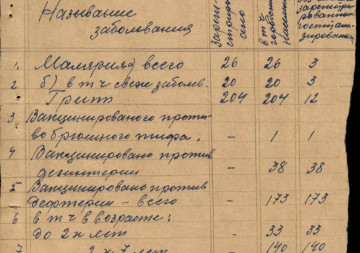 Название
заболевания
зареги-
стриро-
вано
в т ч
Малярия всего 26 26 3
2 б) в т ч свежи заболев. 20 20 3
Грипп 204 204 12
3 Вакцинированого проти-
во брюшного тифа. - 1 1
4 Вакцинировано против
дезинтерии - 38 38
5 Вакцинировано против
Дефтерии - всего - 173 173
6 в т ч в возрасте:
до 2х лет - 33 33
7 2х 7 лет - 140 140